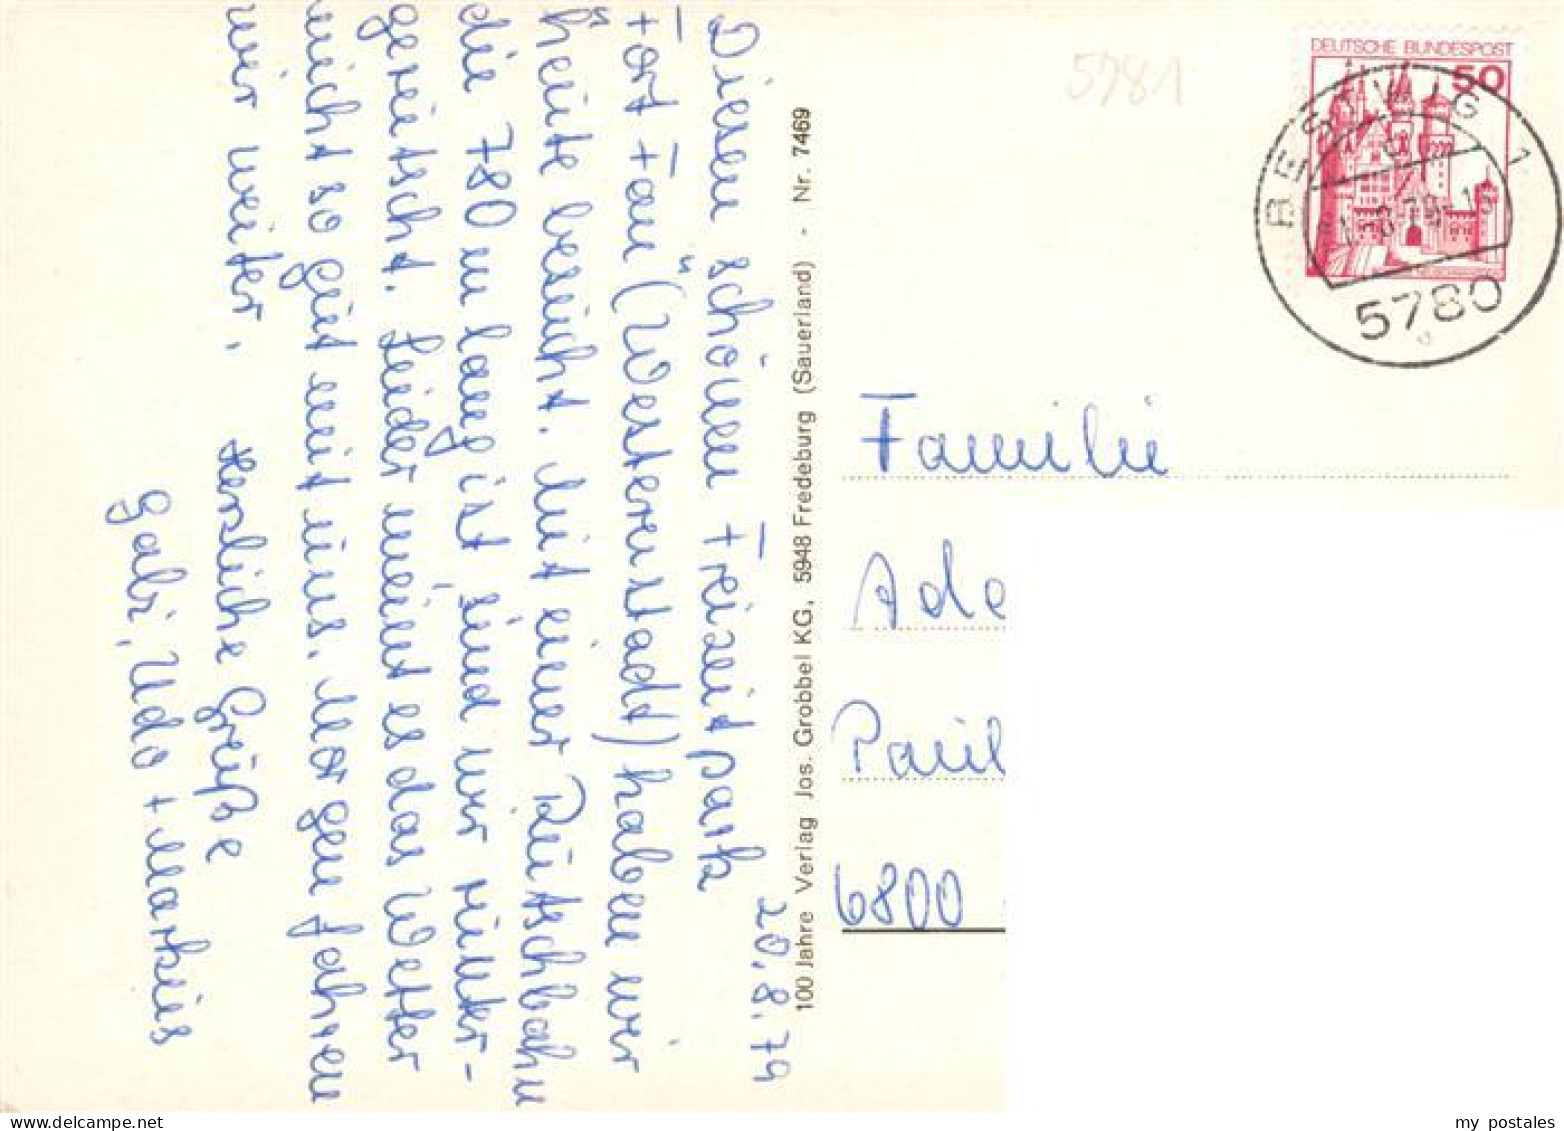 20.8.79
Diesen schönen Freizeitpark
"Fort Fun" (Westernstadt) haben wir
heute besucht. Mit einer Rutschbahn
die 780 m lang ist sind wir runter-
gerutscht. Leider meint es das Wetter
nicht so gut mit uns. Morgen fahren
wir weiter.
Herzliche Grüße
Gabi, Udo + Markus
100 Jahre Verlag Jos. Grobbel KG, 5948 Fredeburg (Sauerland) - Nr. 7469
5781
DEUTSCHE BUNDESPOST
50
BESTWIG 1
5780
Familie
Ade
Paul
6800
my postales